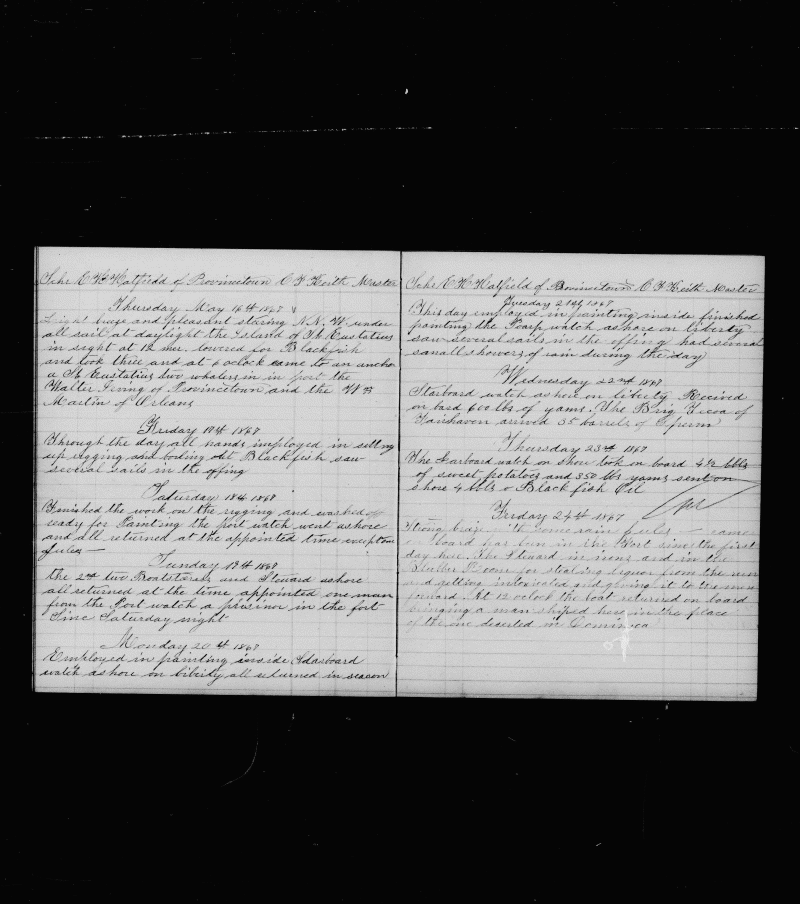 Schr E H Hatfield of Provincetown C F Keith Master
Thursday May 16th 1867
Light breze and pleasant stering N.N.W. under
all sail at daylight the Island of St. Eustatius
in sight at 12 mer. lowered for Blackfish
and took three and at 6 oclock came to an anchor
a St Eustatius two whalers in in port the
Walter Irving of Provincetown and the W
Martin of Orleans
Friday 17th 1867
Through the day all hands imployed in setting
up rigging and boiling out Blackfish saw
several sails in the offing
Saturday 18th 1867
Finished the work on the rigging and washed
ready for Painting the port watch went ashore
and all returned at the appointed time except one
Jules
Sunday 19th 1867
the 2nd two Boatsterers and Steward ashore
all returned at the time appointed one man
from the Port watch a prisinor in the fort
Sinc Saturday night
Monday 20th 1867
Employed in painting inside Starboard
watch ashore on libirty all returned in season
Schr E H Hatfield of Provincetown C F Keith Master
Tuesday 21st 1867
This day employed in painting inside finished
painting the Starb watch ashore on liberty
saw several sails in the offing had several
small showers of rain during the day
Wednesday 22nd 1867
Starboard watch ashore on liberty Recived
on bord 600 lbs of yams. The Brig of
Fairhaven arrived 35 barrels of Sperm
Thursday 23rd 1867
The Starboard watch on shore took on board 4 1/2 bbls
of sweet potatoes and 350 lbs yams sent on
shore 4 bbls o Black fish Oil
Friday 24th 1867
Strong breze with some rain Jules came
on board has ben in the Fort since the first
day here. The Steward in irons and in the
Blubber Room for stealing liquor from the run
and getting intoxicated and giving it to the men
forward. At 12 oclock the boat returned on board
bringing a man shiped here in the place
of the one deserted in Dominica